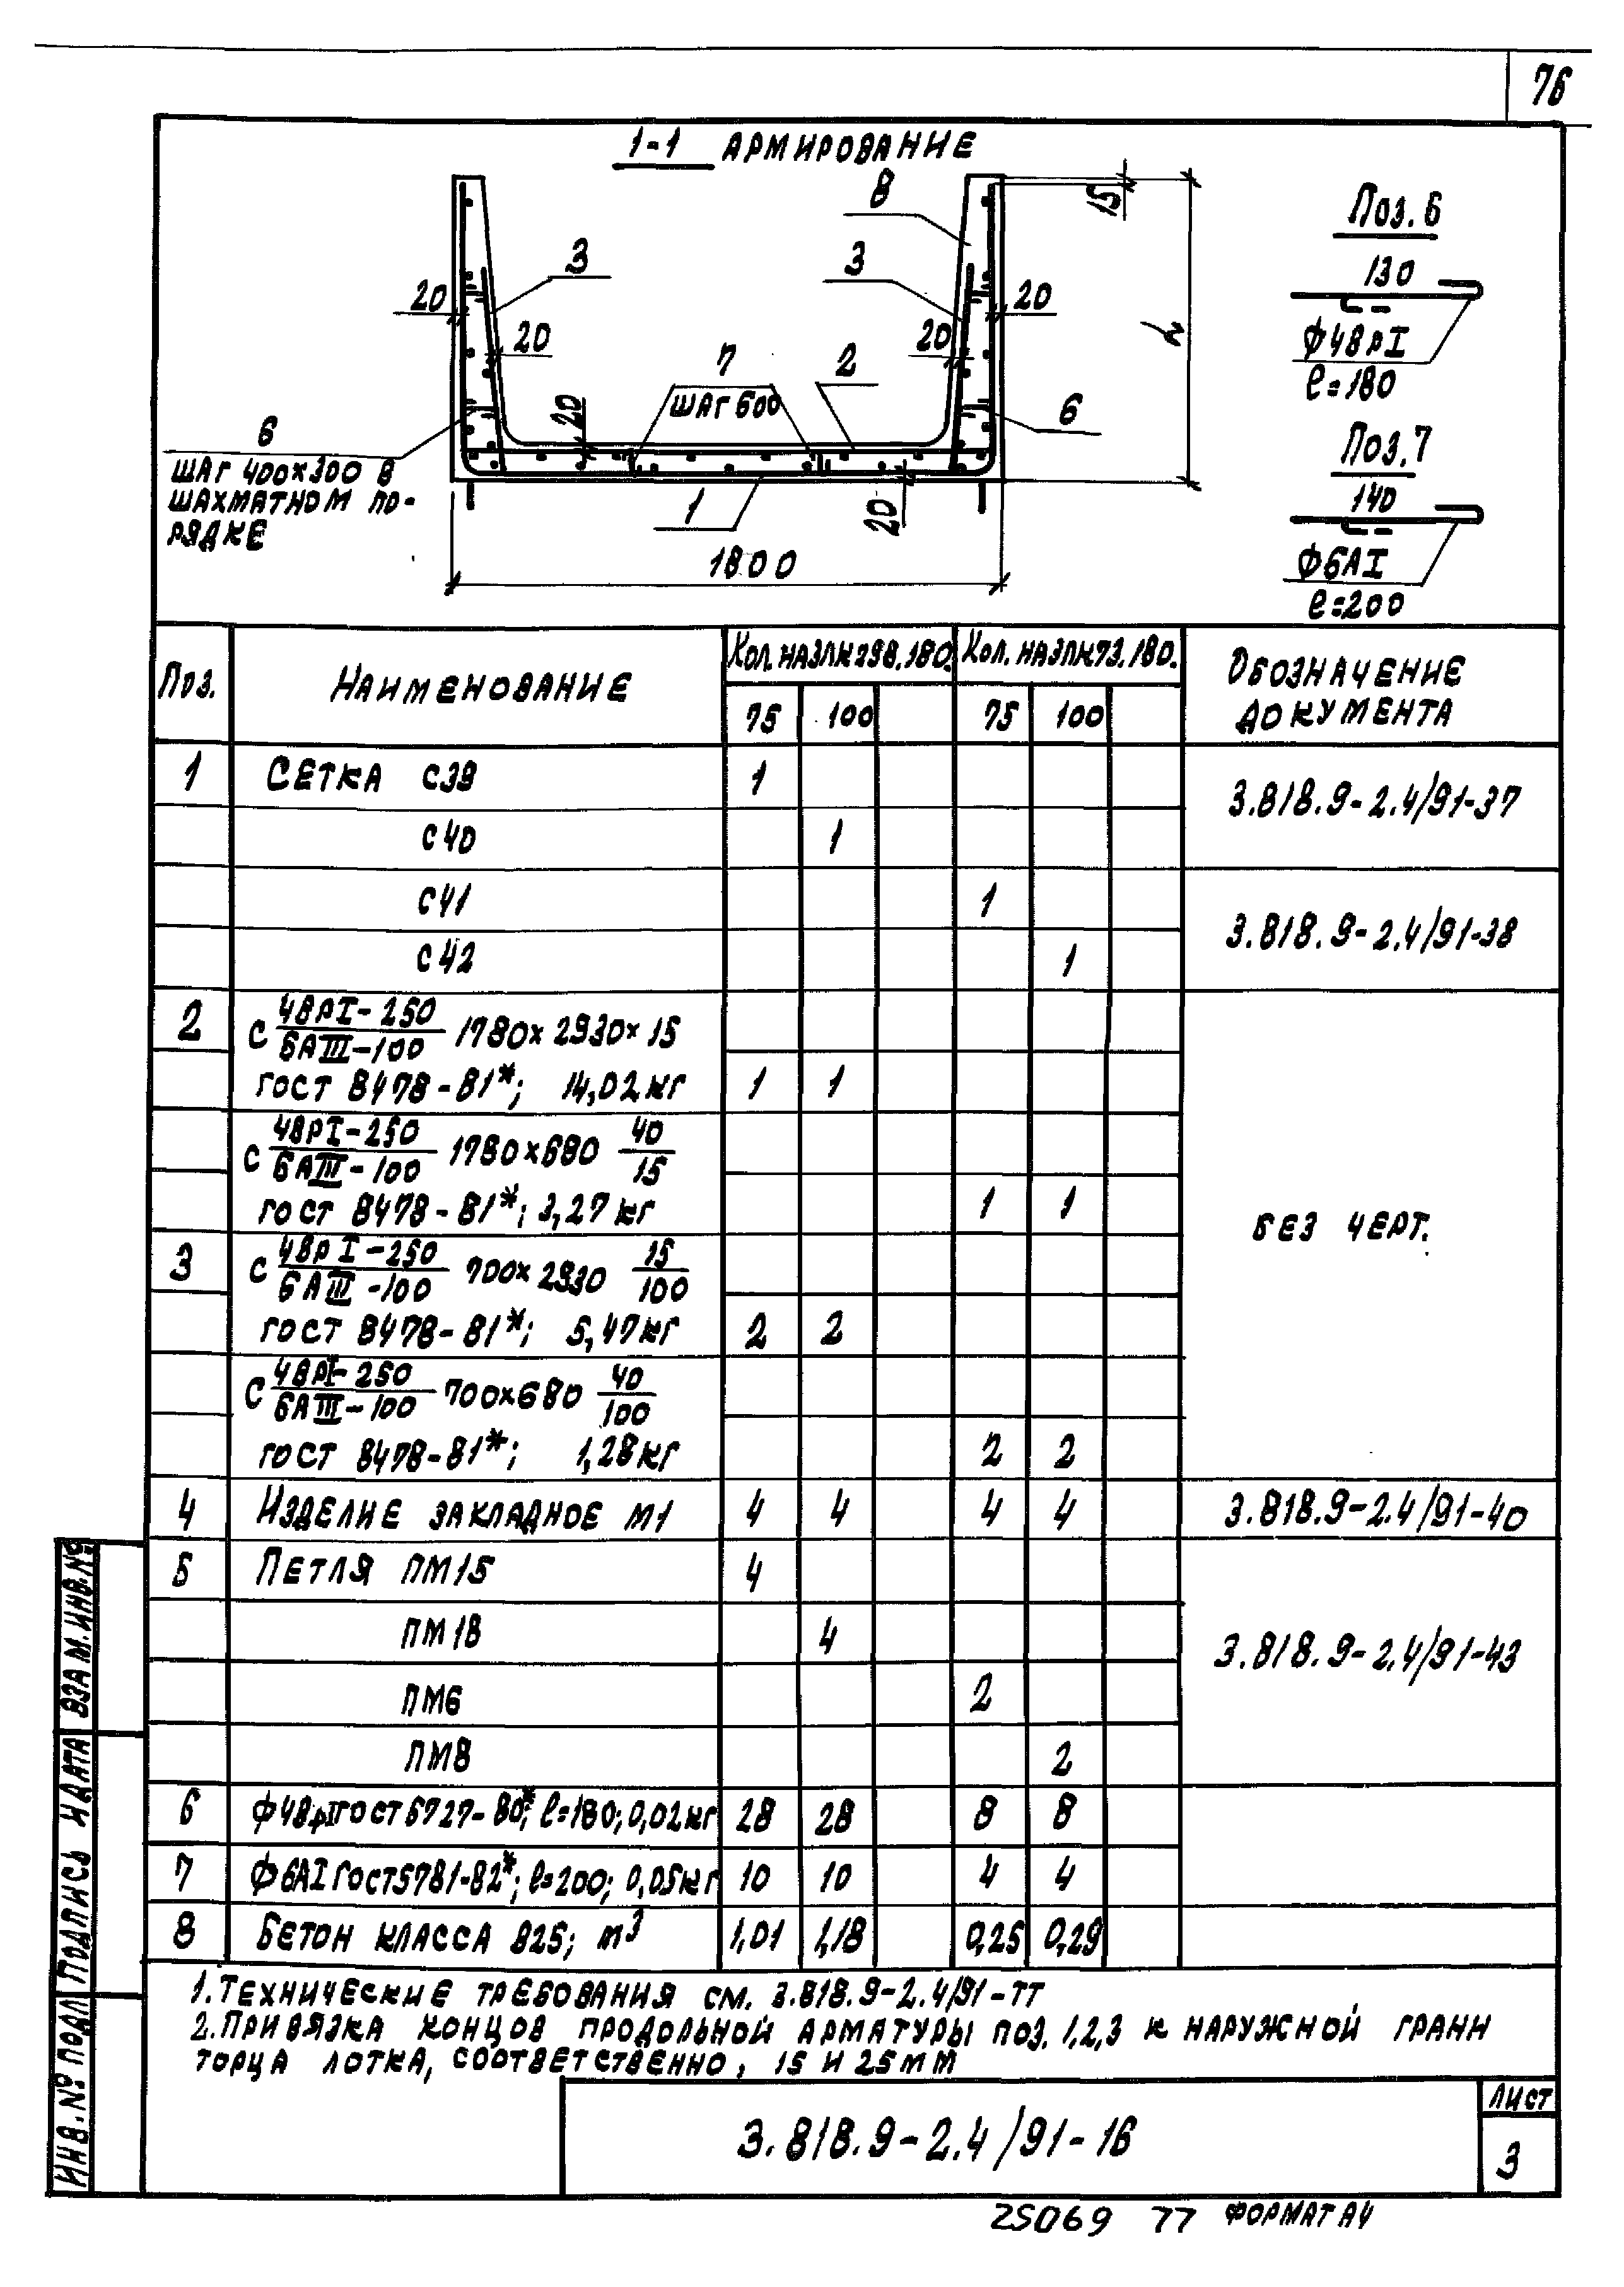 76
1-1 АРМИРОВАНИЕ
8
15
Поз. 6
3
3
130
20
20
20
20
h
Ф4ВрI
ℓ=180
7
2
ШАГ 600
20
6
6
ШАГ 400×300 В
ШАХМАТНОМ ПО-
РЯДКЕ
Поз. 7
140
1
20
Ф6АI
ℓ=200
1800
Поз.
НАИМЕНОВАНИЕ
Кол. НА ЗЛК 298.180.
Кол. НА ЗЛК 73.180.
ОБОЗНАЧЕНИЕ
ДОКУМЕНТА
75 100 75 100
1 СЕТКА С39 1
3.818.9-2.4/91-37
С40 1
С41 1
3.818.9-2.4/91-38
С42 1
2 С 4ВрI-250 / 6АIII-100 1780×2930×15
ГОСТ 8478-81*; 14,02 кг 1 1
С 4ВрI-250 / 6АIII-100 1780×680 40/15
ГОСТ 8478-81*; 3,27 кг 1 1
БЕЗ ЧЕРТ.
3 С 4ВрI-250 / 6АIII-100 700×2930 15/100
ГОСТ 8478-81*; 5,47 кг 2 2
С 4ВрI-250 / 6АIII-100 700×680 40/100
ГОСТ 8478-81*; 1,28 кг 2 2
4 ИЗДЕЛИЕ ЗАКЛАДНОЕ М1 4 4 4 4 3.818.9-2.4/91-40
5 ПЕТЛЯ ПМ15 4
ПМ18 4
3.818.9-2.4/91-43
ПМ6 2
ПМ8 2
6 Ф4ВрI ГОСТ 6727-80*; ℓ=180; 0,02 кг 28 28 8 8
7 Ф6АI ГОСТ 5781-82*; ℓ=200; 0,05 кг 10 10 4 4
8 БЕТОН КЛАССА В25; м³ 1,01 1,18 0,25 0,29
1. ТЕХНИЧЕСКИЕ ТРЕБОВАНИЯ СМ. 3.818.9-2.4/91-ТТ
2. ПРИВЯЗКА КОНЦОВ ПРОДОЛЬНОЙ АРМАТУРЫ ПОЗ. 1,2,3 К НАРУЖНОЙ ГРАНИ
ТОРЦА ЛОТКА, СООТВЕТСТВЕННО, 15 И 25 мм
ИНВ. № ПОДЛ
ПОДПИСЬ И ДАТА
ВЗАМ. ИНВ. №
3.818.9-2.4/91-16
ЛИСТ
3
25069 77 ФОРМАТ А4